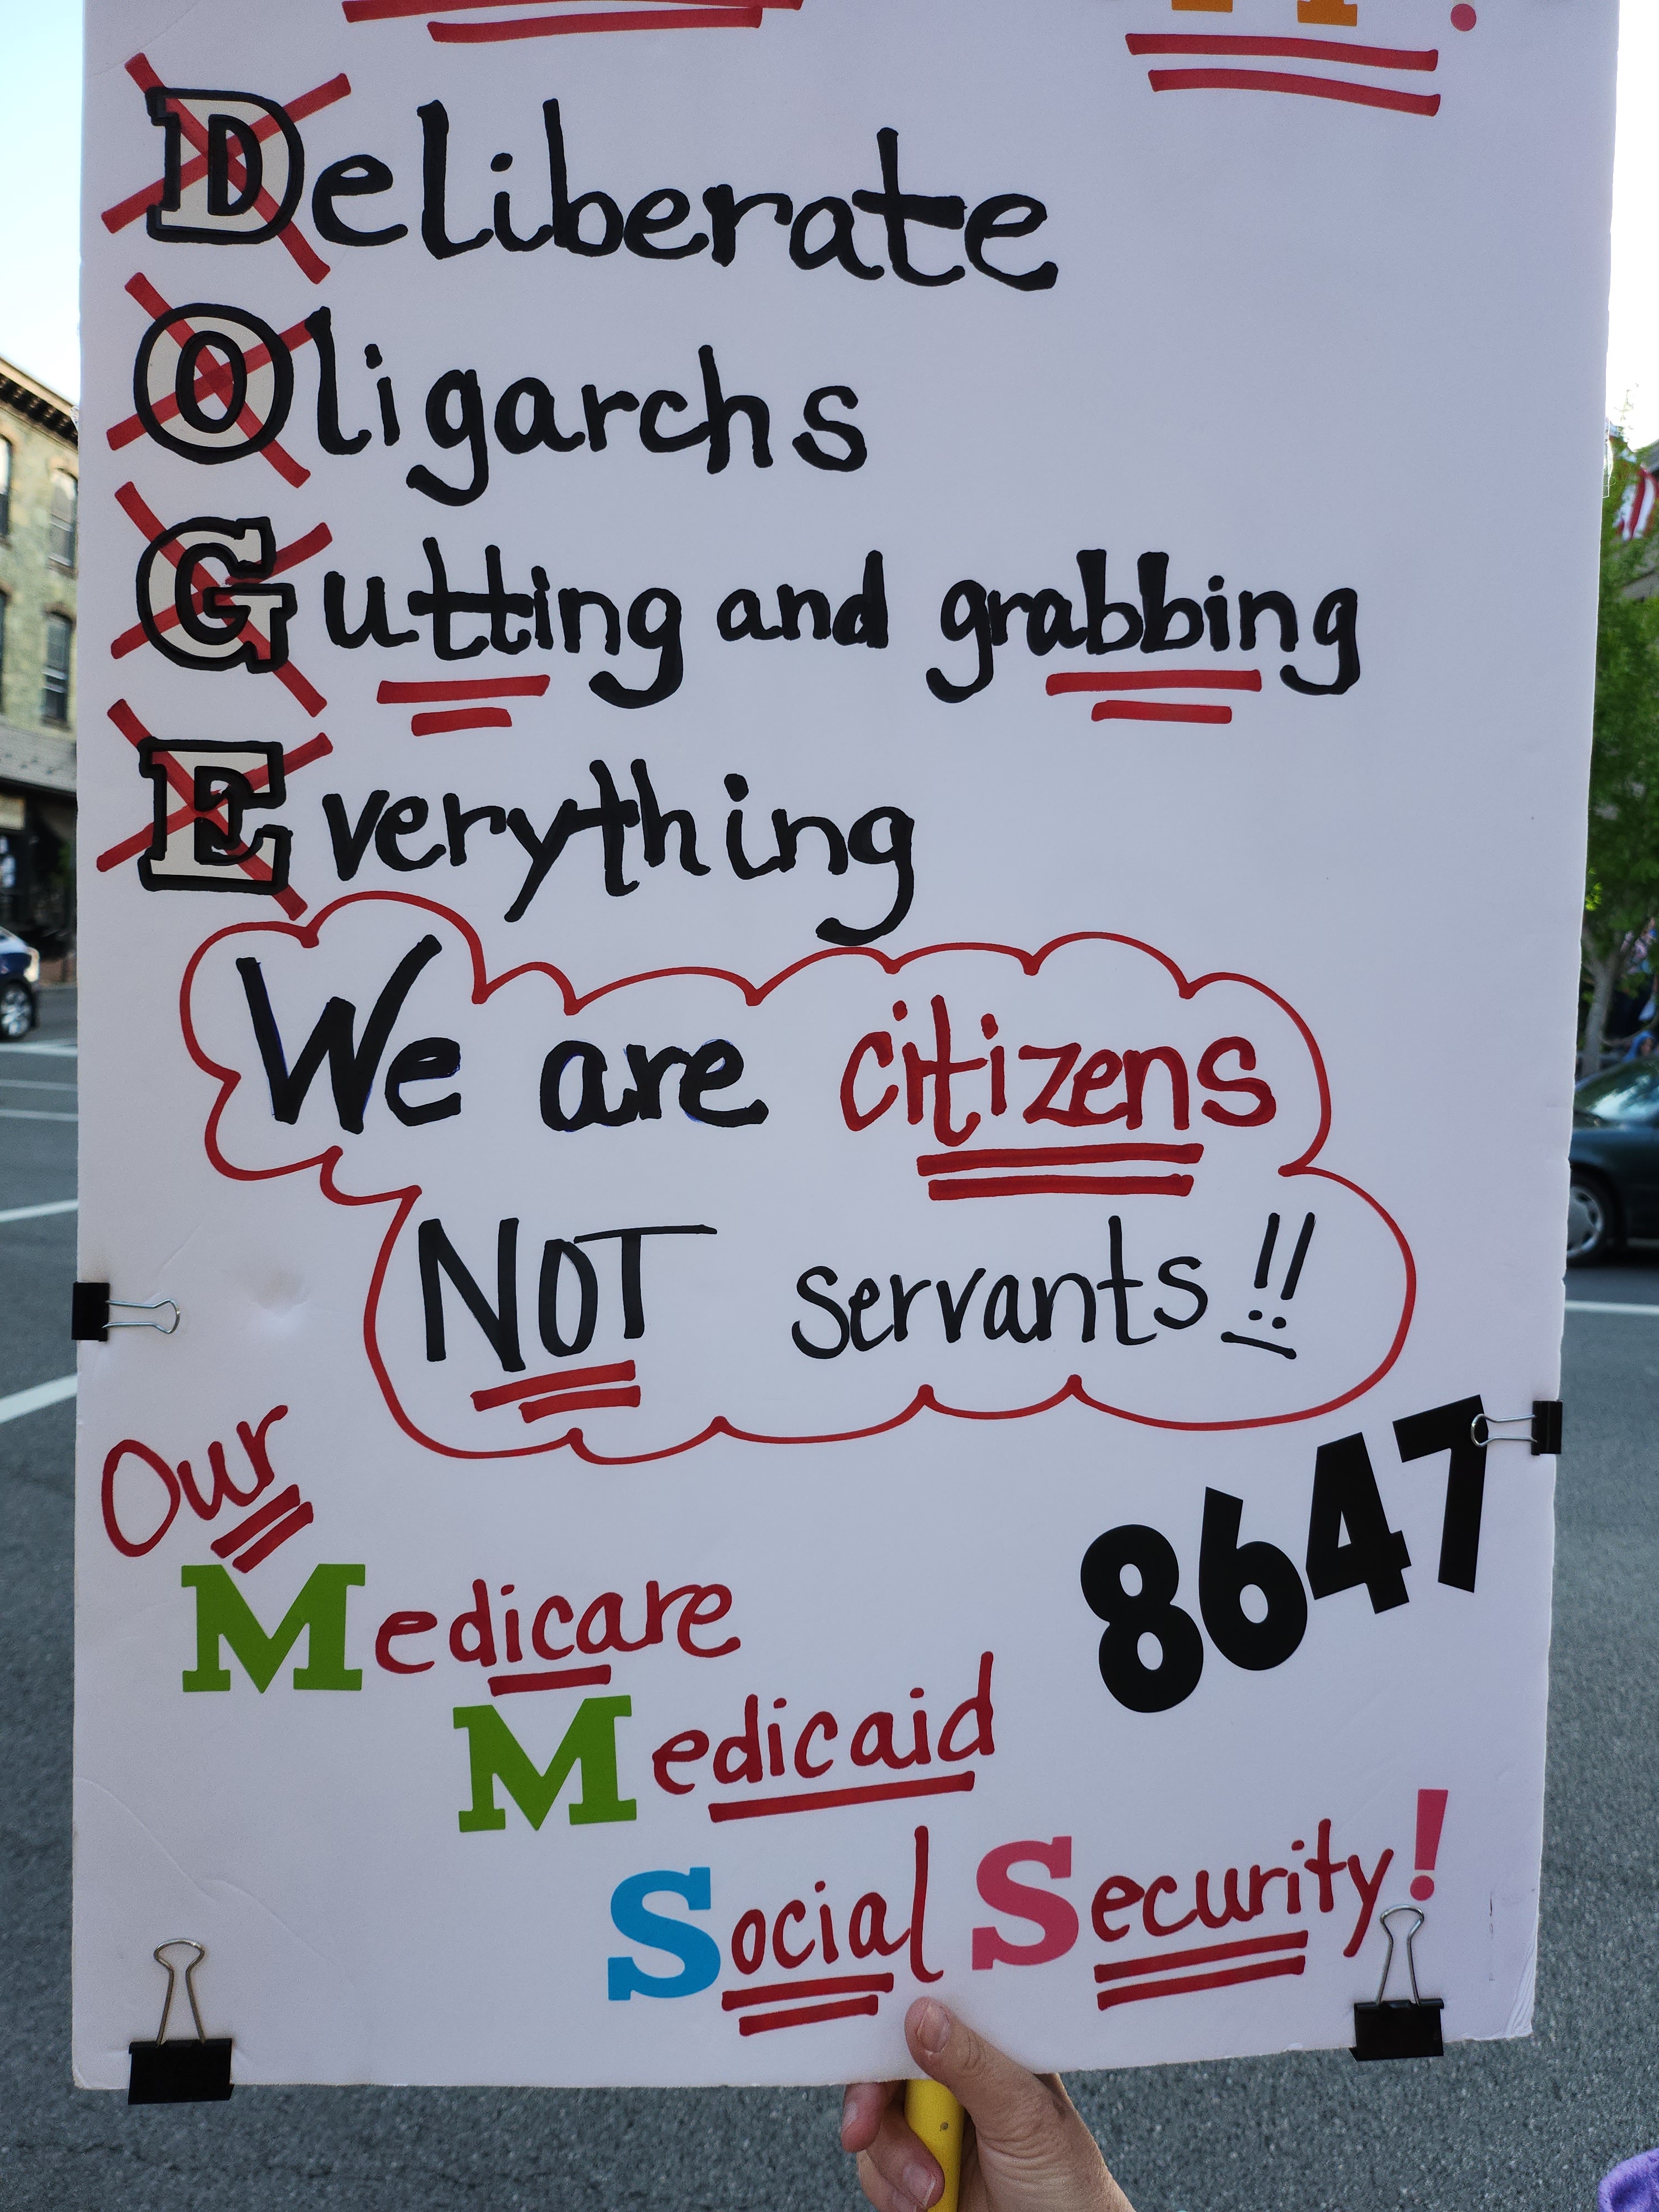 Deliberate
Oligarchs
Gutting and grabbing
Everything
We are citizens
NOT servants!!
Our
Medicare
8647
Medicaid
Social Security!